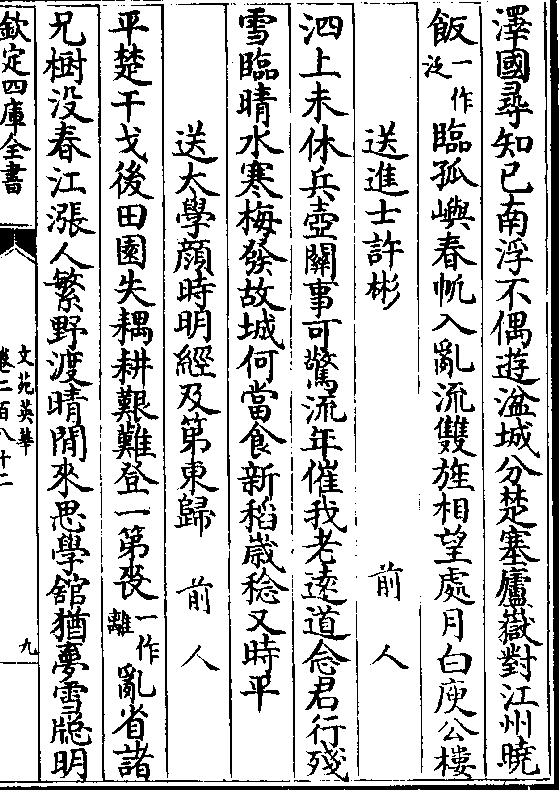 澤國尋知已南浮不偶遊湓城分楚塞廬嶽對江州曉
飯一作泛臨孤嶼春帆入亂流雙旌相望處月白庾公樓
送進士許彬 前人
泗上未休兵壺關事可驚流年催我老遠道念君行殘
雪臨晴水寒梅發故城何當食新稻歲稔又時平
送太學顔時明經及第東歸 前人
平楚干戈後田園失耦耕艱難登一第喪一作離亂省諸
兄樹没春江漲人繁野渡晴閒來思學舘猶夢雪牕明
欽定四庫全書
文苑英華
卷二百八十二
九